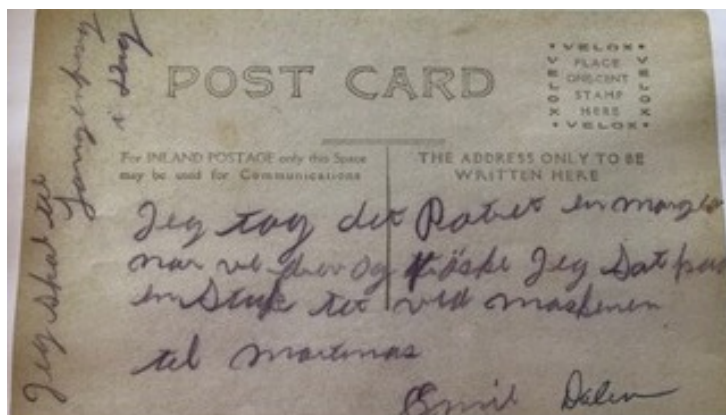 POST CARD
VELOX
PLACE
ONE CENT
STAMP
HERE
VELOX
VELOX
VELOX
For INLAND POSTAGE only this Space
may be used for Communications
THE ADDRESS ONLY TO BE
WRITTEN HERE
Jeg tog det Potret en morgen
nar vi drev og tröske Jeg Sat paa
en Stub tet ved maskinen
til Martinas
Emil Dalen
Jeg skal
i dag